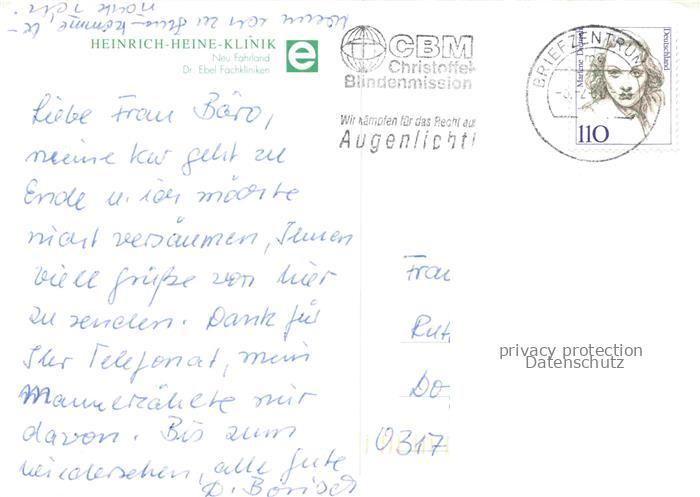 HEINRICH-HEINE-KLINIK
Neu Fahrland
Dr. Ebel Fachkliniken
e
CBM
Christoffel-
Blindenmission
Wir kämpfen für das Recht auf
Augenlicht!
BRIEFZENTRUM
Marlene Dietrich
Deutschland
110
Liebe Frau Bäro,
meine Kur geht zu
Ende u. ich möchte
nicht versäumen, Ihnen
viele Grüße von hier
zu senden. Dank für
Ihr Telefonat, mein
Mann erzählte mir
davon. Bis zum
Wiedersehen, alle gute
D. Börisch
Frau
Rut
Do
0317
privacy protection
Datenschutz